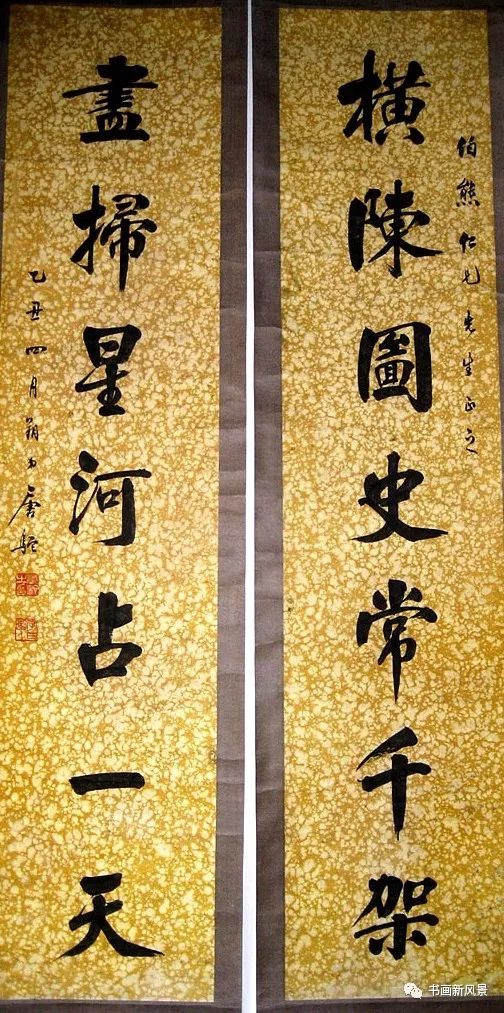 伯熊仁兄先生正之
橫陳圖史常千架
盡掃星河占一天
乙丑四月朔弟唐駝
书画新风景